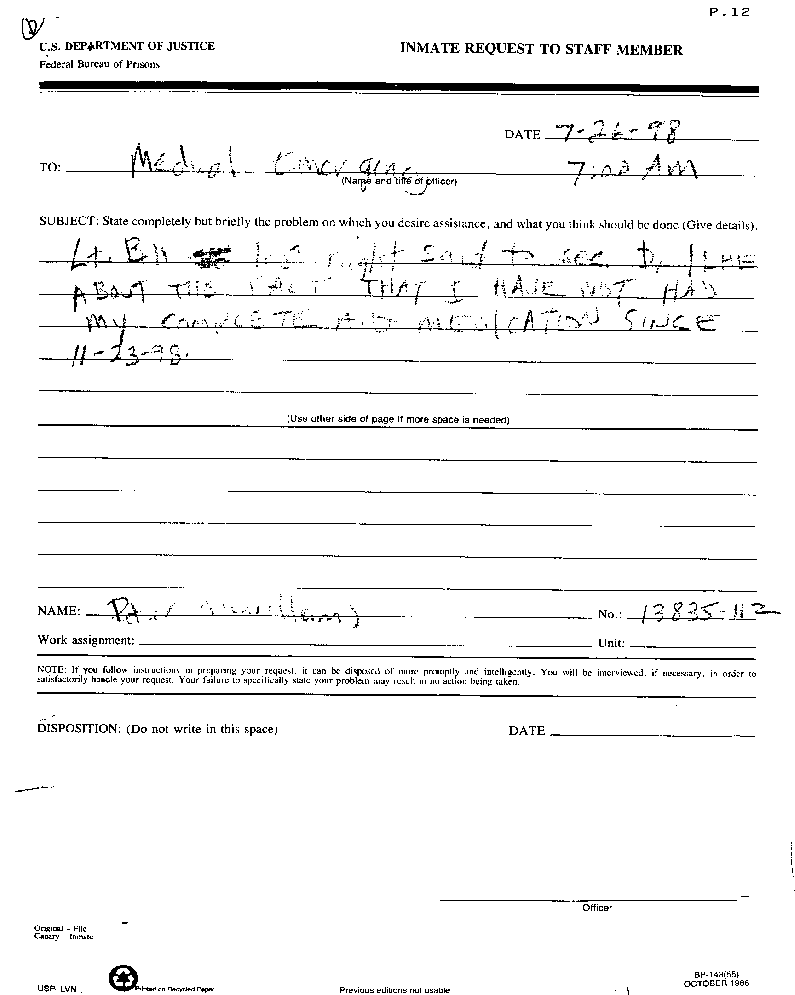 P.12
U.S. DEPARTMENT OF JUSTICE
Federal Bureau of Prisons
INMATE REQUEST TO STAFF MEMBER
DATE 7-26-98
7:00 AM
TO: Medical Emergency
(Name and title of officer)
SUBJECT: State completely but briefly the problem on which you desire assistance, and what you think should be done (Give details).
Lt. night said to see
ABOUT THE FACT THAT I HAVE NOT HAD
MY COMPLETE MEDICATION SINCE
11-23-98.
(Use other side of page if more space is needed)
NAME:
No.: 13835-112
Work assignment:
Unit:
NOTE: If you follow instructions in preparing your request, it can be disposed of more promptly and intelligently. You will be interviewed, if necessary, in order to
satisfactorily handle your request. Your failure to specifically state your problem may result in no action being taken.
DISPOSITION: (Do not write in this space)
DATE
Officer
Original - File
Canary - Inmate
USP LVN
Printed on Recycled Paper
Previous editions not usable
BP-148(55)
OCTOBER 1986